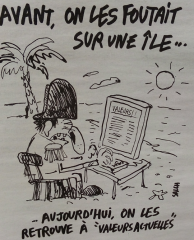 AVANT, ON LES FOUTAIT
SUR UNE ÎLE...
VALEURS!
SALCH
.. AUJOURD'HUI, ON LES
RETROUVE À "VALEURS ACTUELLES"